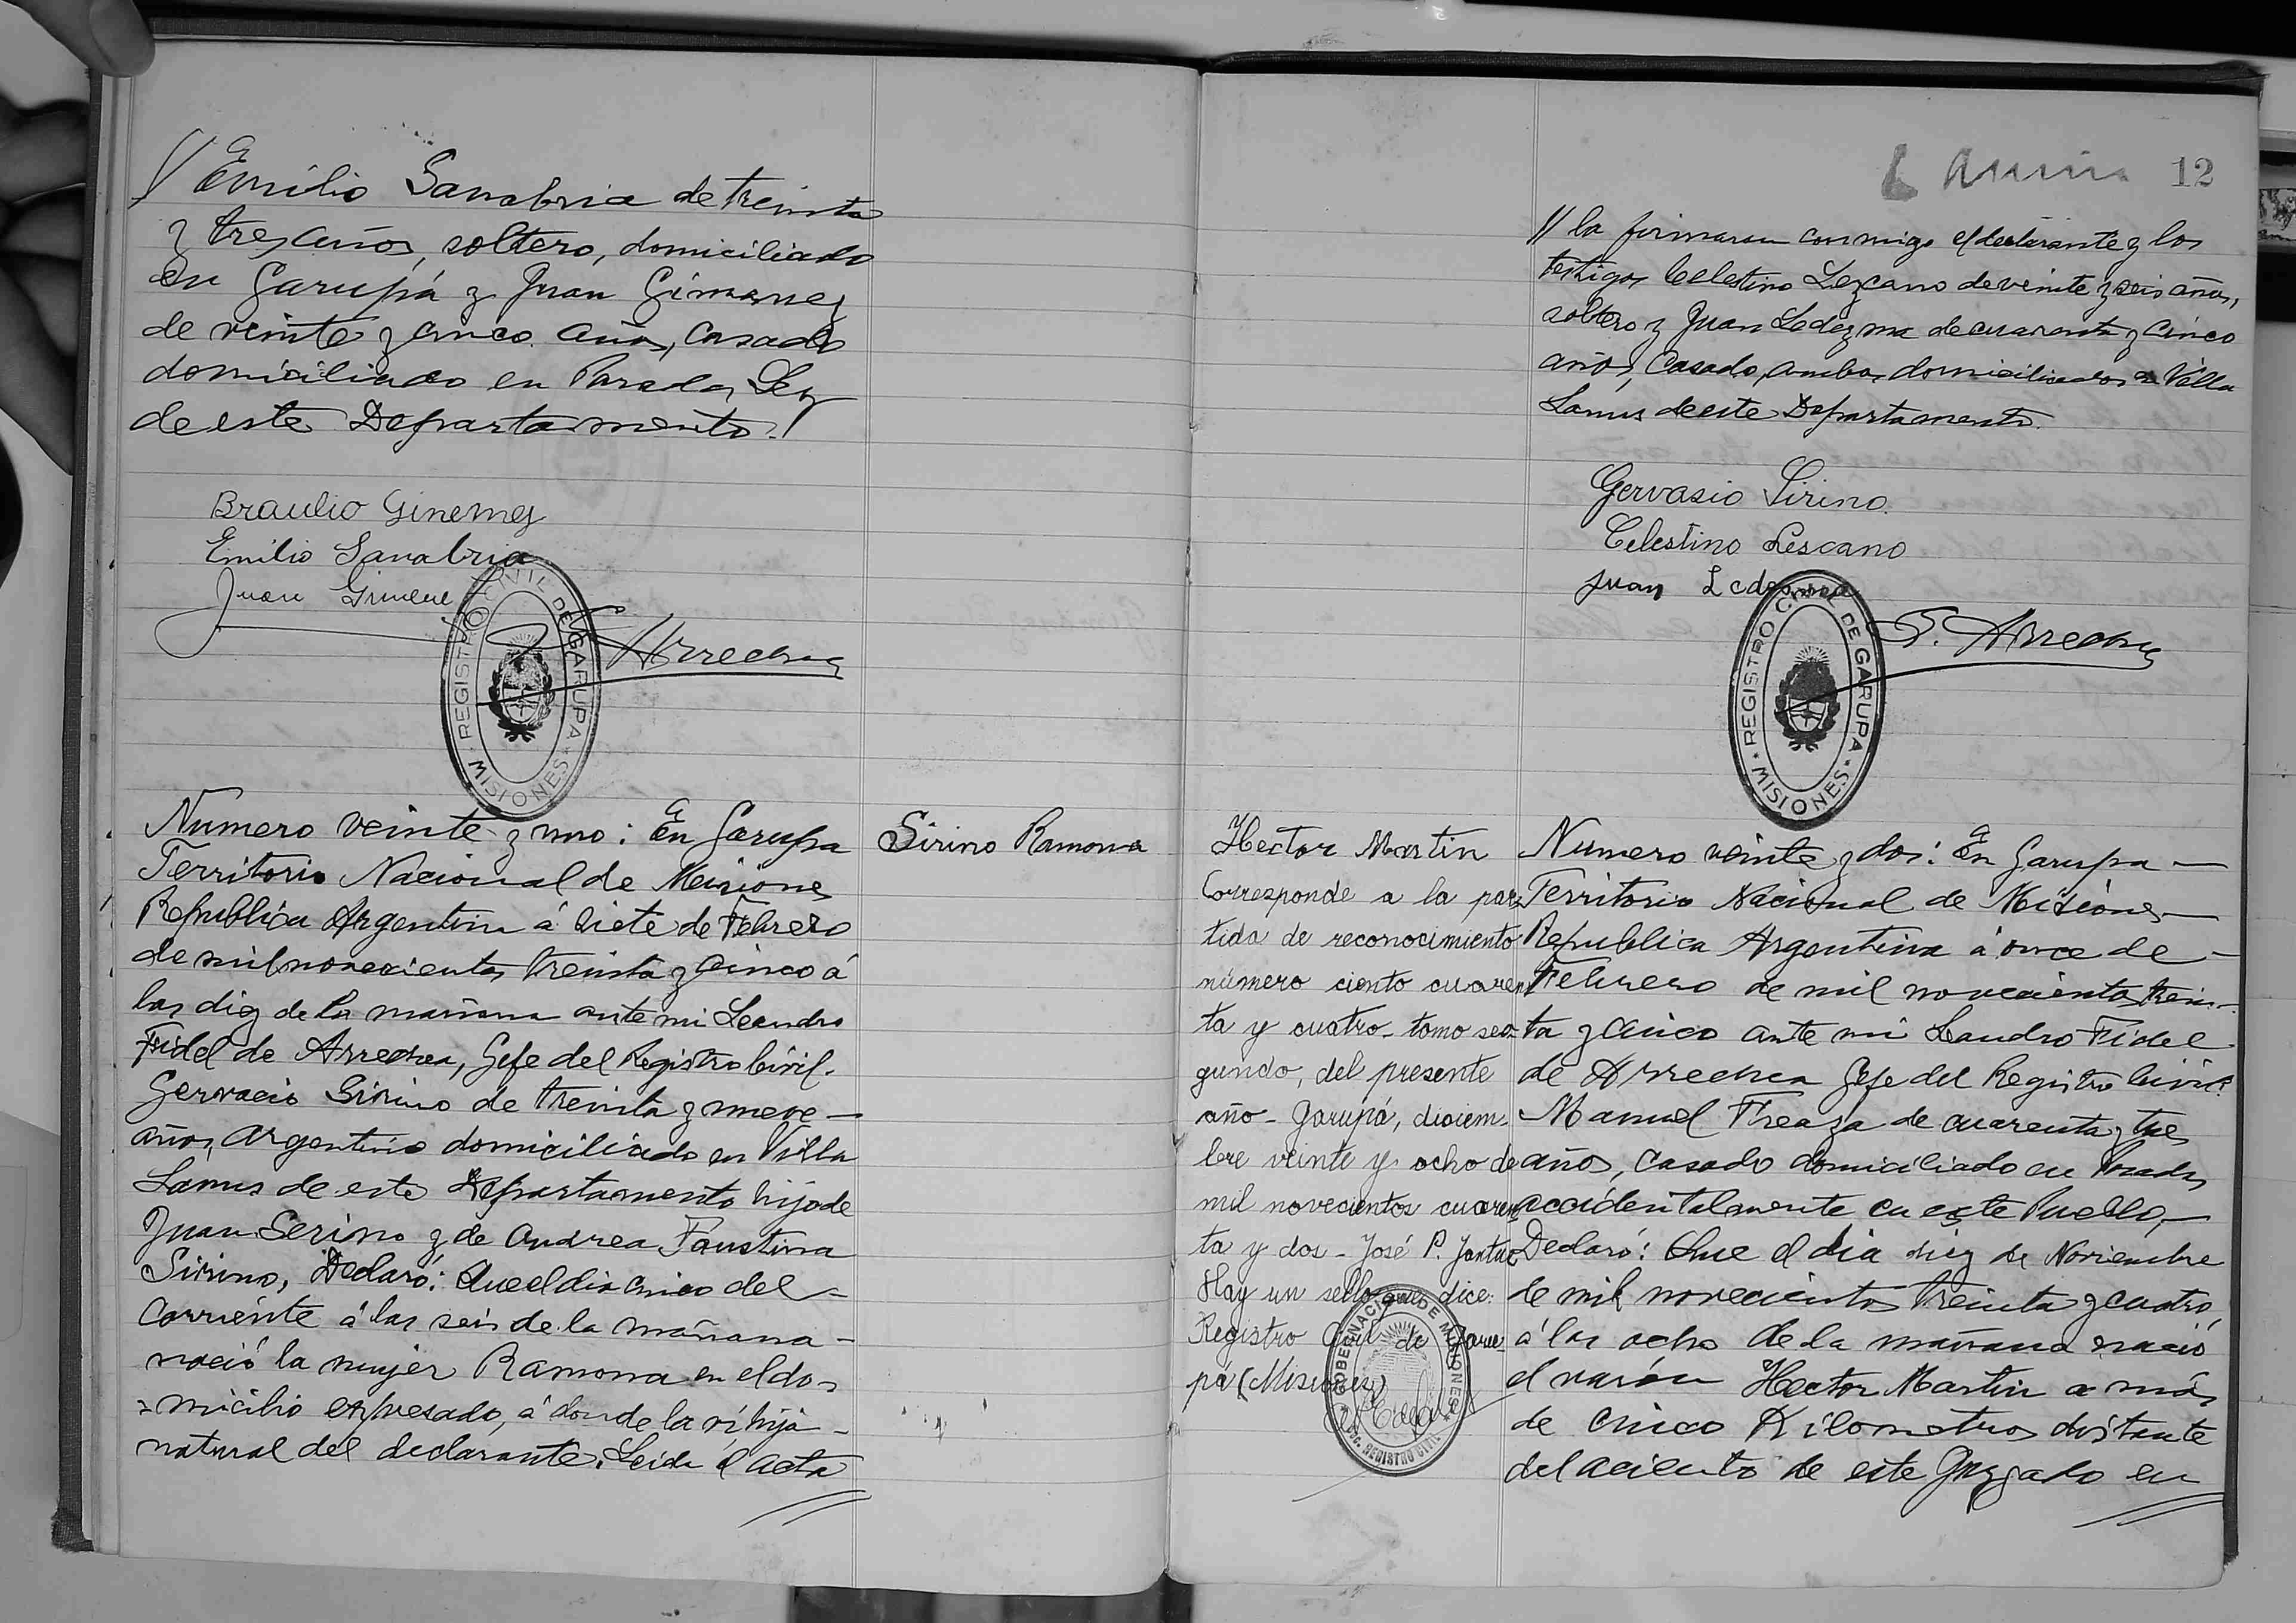 // Emilio Sanabria de treinta
y tres años, soltero, domiciliado
en Garupá y Juan Gimenez
de veinte y cinco años, casado
domiciliado en Parada Ley
de este Departamento.
Braulio Ginemez
Emilio Sanabria
Juan Gimene
Arrechea
REGISTRO CIVIL DE GARUPA
* MISIONES *
Numero veinte y uno: En Garupa
Territorio Nacional de Misiones
Republica Argentina á siete de Febrero
de mil novecientos treinta y cinco á
las diez de la mañana ante mi Leandro
Fidel de Arrechea, Gefe del Registro Civil.
Gervacio Sirino de treinta y nueve
años, argentino domiciliado en Villa
Lanus de este Departamento hijo de
Juan Serino y de Andrea Faustina
Sirino, Declaró: Que el dia cinco del
corriente á las seis de la mañana
nació la mujer Ramona en el do-
micilio expresado, á donde la ví hija
natural del declarante. Leida el acta
Sirino Ramona
12
// la firmaran conmigo el declarante y los
testigos Celestino Lezcano de veinte y seis años,
soltero y Juan Ledezma de cuarenta y cinco
años, casado, ambos domiciliados en Villa
Lanus de este Departamento.
Gervasio Sirino.
Celestino Lescano
Juan Ledesma
Arrechea
REGISTRO CIVIL DE GARUPA
* MISIONES *
Hector Martin
Corresponde a la par-
tida de reconocimiento
número ciento cuaren-
ta y cuatro- tomo se-
gundo, del presente
año- Garupá, diciem-
bre veinte y ocho de
mil novecientos cuaren-
ta y dos- José P.
Hay un sello que dice:
Registro Civil de Garu-
pá (Misiones)
GOBERNACION DE MISIONES
REGISTRO CIVIL
Numero veinte y dos: En Garupa
Territorio Nacional de Misiones
Republica Argentina á once de
Febrero de mil novecientos trein-
ta y cinco ante mi Leandro Fidel
de Arrechea Gefe del Registro Civil:
Manuel de cuarenta y tres
años, casado domiciliado en Posadas
accidentalmente en este Pueblo,
Declaró: Que el dia diez de Noviembre
de mil novecientos treinta y cuatro,
á las ocho de la mañana nació
el varón Hector Martin a más
de cinco Kilometros distante
del aciento de este Juzgado en